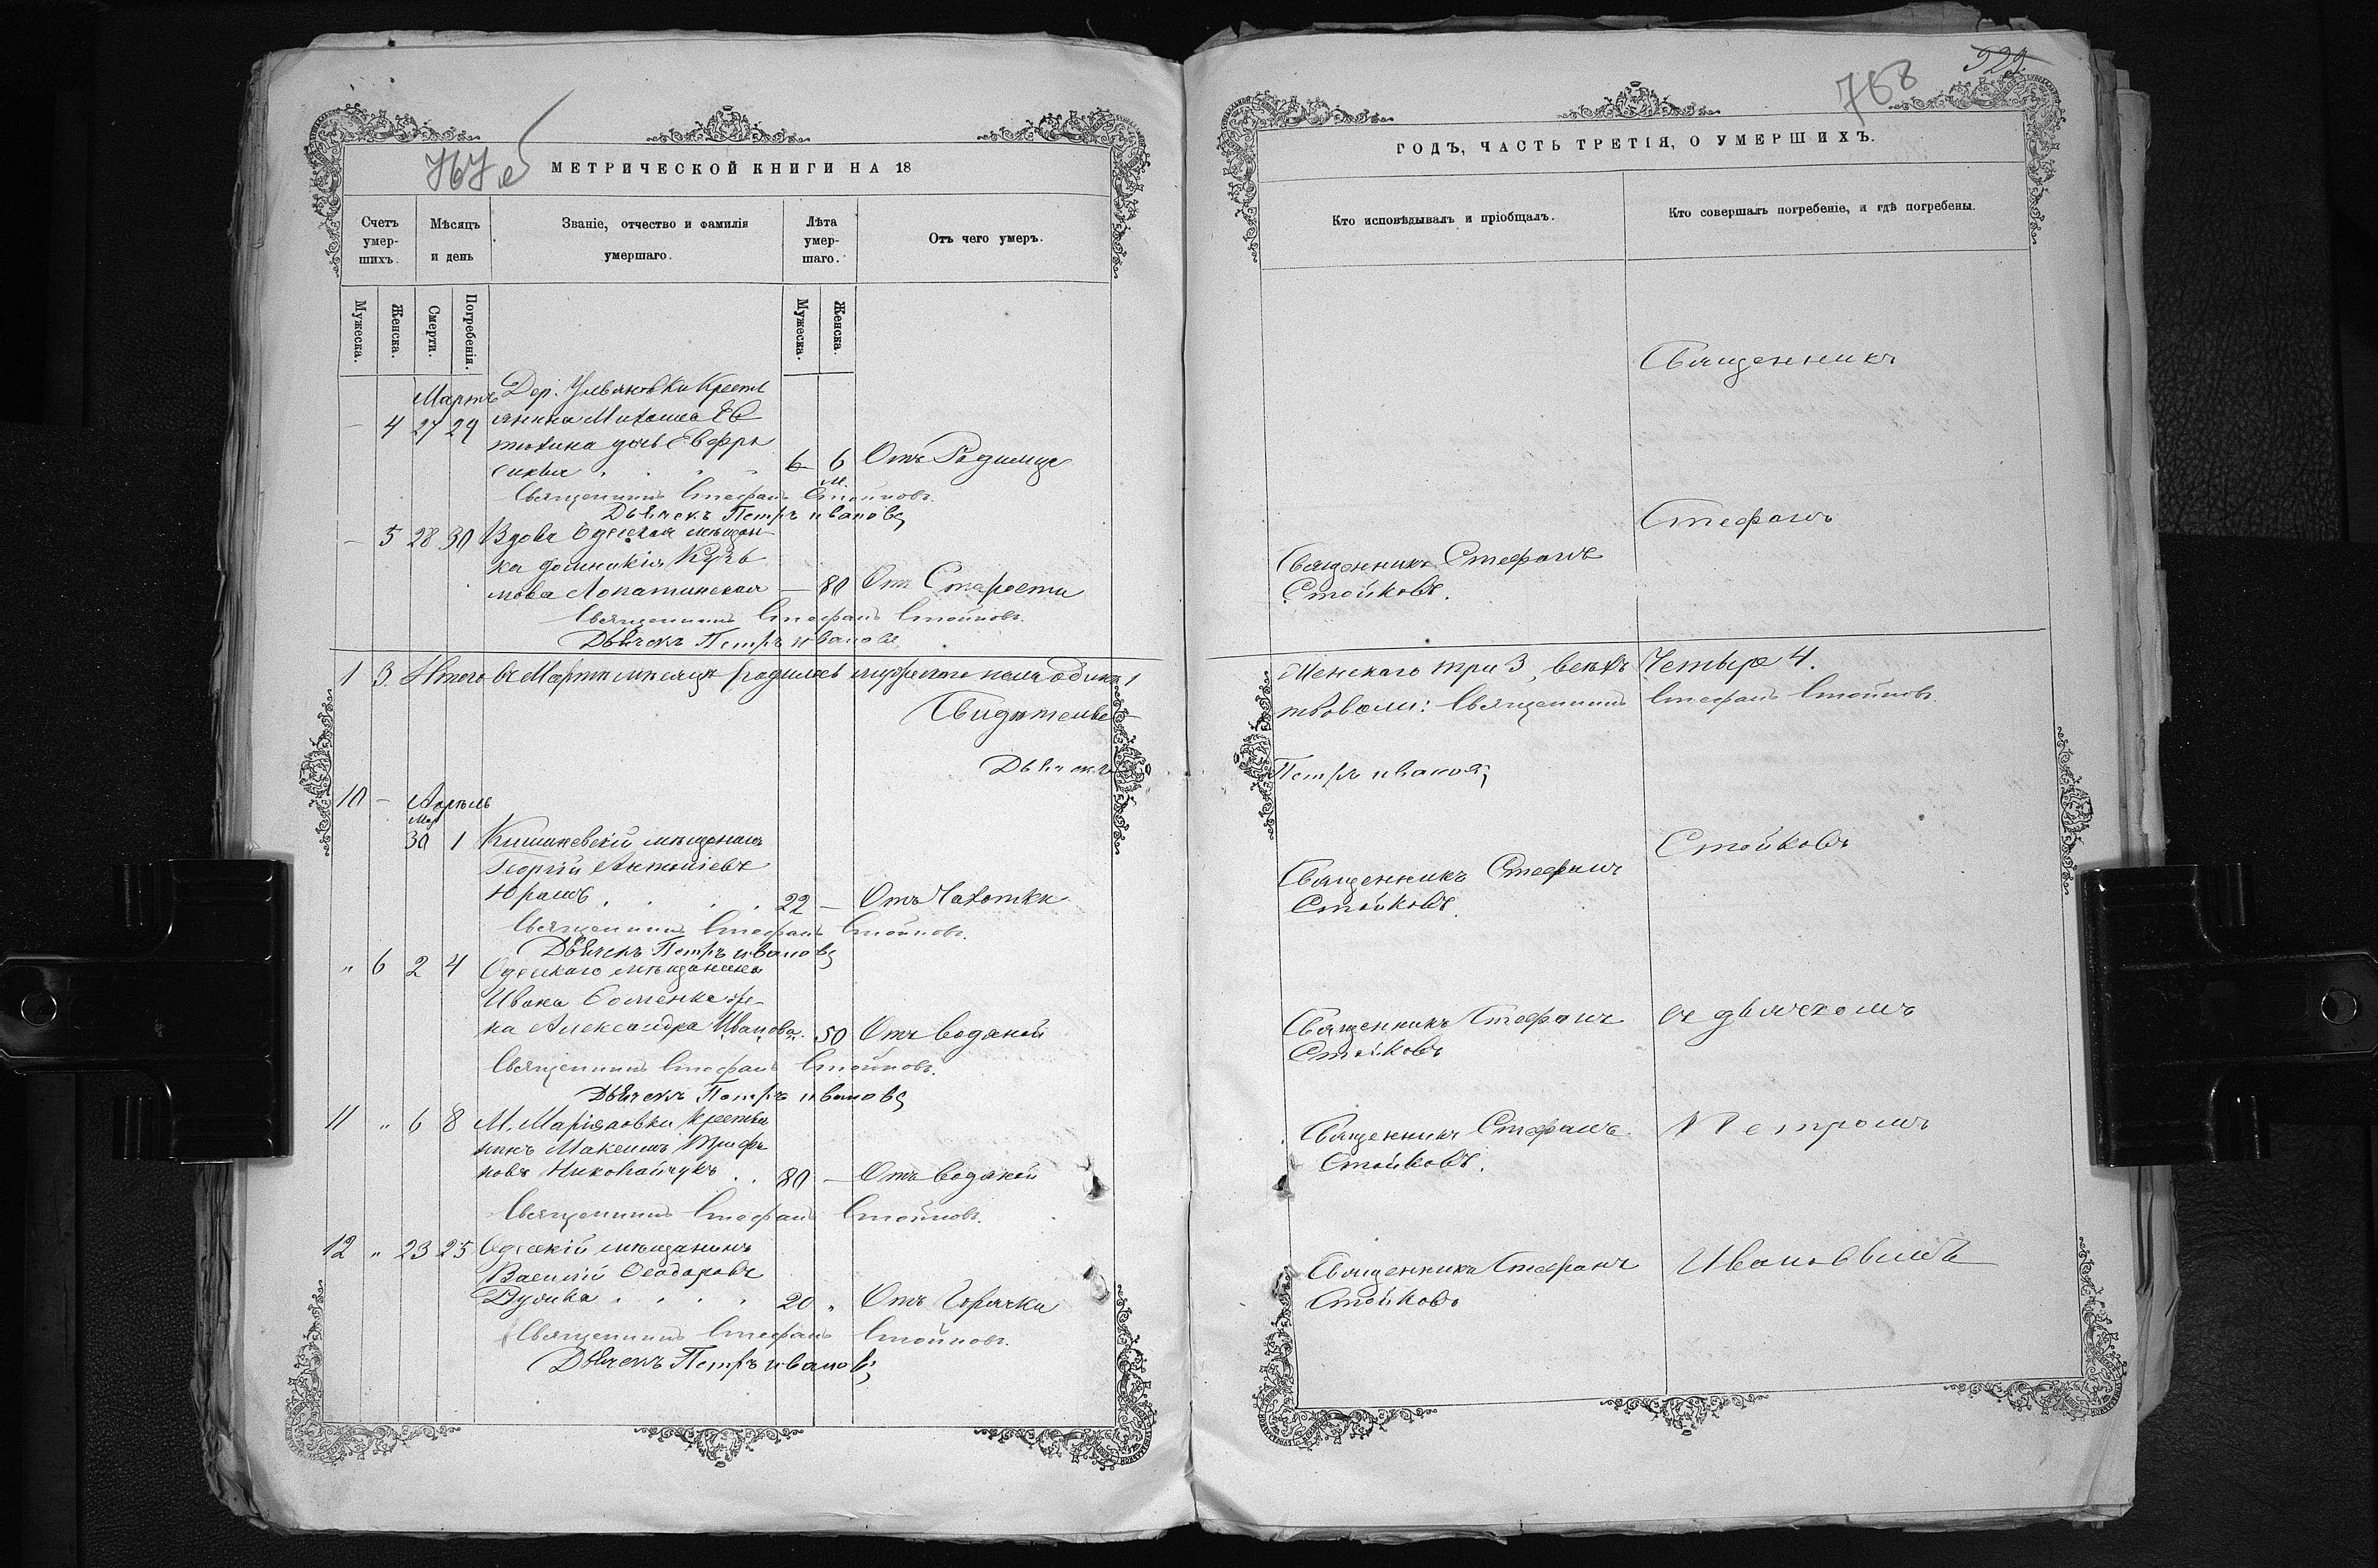 767 об
МЕТРИЧЕСКОЙ КНИГИ НА 18
Счетъ умер-шихъ.
Мѣсяцъ и день
Званіе, отчество и фамилія умершаго.
Лѣта умер-шаго.
Отъ чего умеръ.
Мужеска.
Женска.
Смерти.
Погребенія.
Мужеска.
Женска.
Мартъ Дер. Ульяновки Крестъ
— 4 27 29 янина Михаила
дочь Евфро
синія 6 6 Отъ Родимца
м.
Священникъ Стефанъ Стойковъ.
Дьячекъ Петръ Ивановъ
— 5 28 30 Вдова Одесская мѣщан-
ка Домникія Кузь
мова Лопатинская — 80 Отъ Старости
Священникъ Стефанъ Стойковъ.
Дьячекъ Петръ Ивановъ
1 3. Итого въ Мартѣ мѣсяцѣ родилось мужескаго пола одинъ 1
Свидѣтельс
Дьячекъ
10 — Апрѣль
Мар
30 1 Кишиневскій мѣщанинъ
Георгій Антоніевъ
Юрашъ 22 — Отъ Чахотки
Священникъ Стефанъ Стойковъ.
Дьячекъ Петръ Ивановъ
„ 6 2 4 Одесскаго мѣщанина
Ивана же-
на Александра Иванова. 50 Отъ водяной
Священникъ Стефанъ Стойковъ.
Дьячекъ Петръ Ивановъ
11 „ 6 8 М. Маріяновки Крестья
нинъ Максимъ Трифо
новъ Николайчукъ 80 — Отъ водяной
Священникъ Стефанъ Стойковъ.
12 „ 23 25 Одесскій мѣщанинъ
Василій Ѳеодоровъ
20 „ Отъ Горячки
Священникъ Стефанъ Стойковъ.
Дьячекъ Петръ Ивановъ
768
929
ГОДЪ, ЧАСТЬ ТРЕТІЯ, О УМЕРШИХЪ.
Кто исповѣдывалъ и пріобщалъ.
Кто совершалъ погребеніе, и гдѣ погребены.
Священникъ
Стефанъ
Священникъ Стефанъ
Стойковъ.
Женскаго три 3, всѣхъ Четыре 4.
твовали: Священникъ Стефанъ Стойковъ.
Петръ Ивановъ
Стойковъ
Священникъ Стефанъ
Стойковъ.
Священникъ Стефанъ съ дьячкомъ
Стойковъ
Священникъ Стефанъ Петромъ
Стойковъ.
Священникъ Стефанъ Ивановымъ
Стойковъ